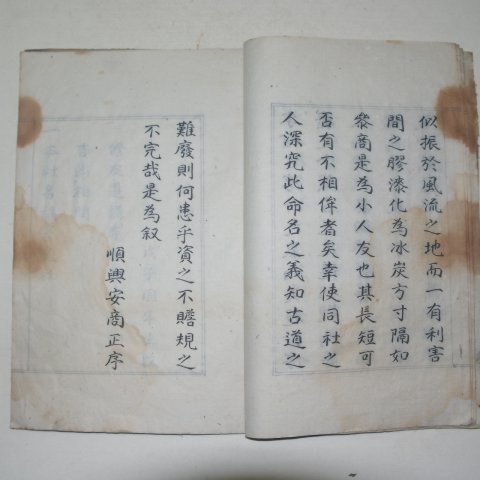 似振於風流之地而一有利害
間之膠漆化為氷炭方寸隔如
叅商是為小人友也其長短可
否有不相侔者矣幸使同社之
人深究此命名之義知古道之
難廢則何患乎資之不贍規之
不完哉是為叙
順興安商正序